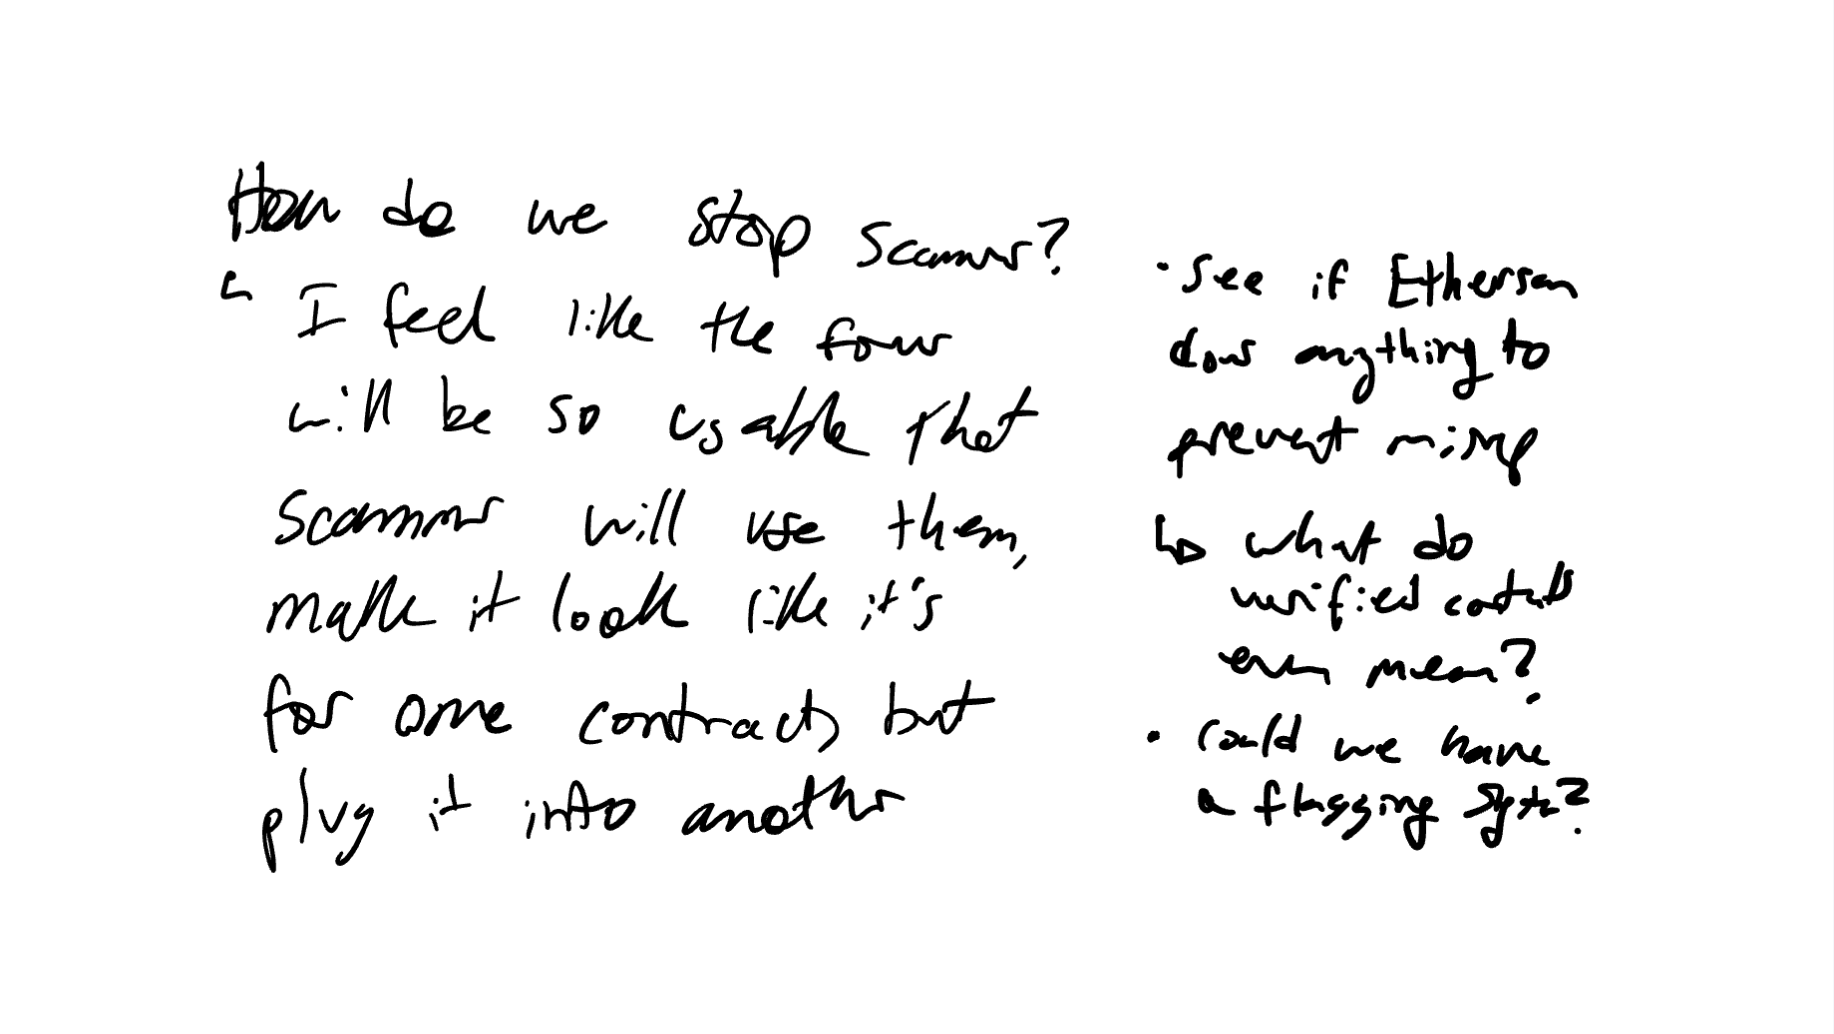 How do we stop scammers?
I feel like the forms
will be so usable that
scammers will use them,
make it look like it's
for one contract, but
plug it into another
· see if Etherscan
does anything to
prevent misrep
↳ what do
verified contracts
even mean?
· could we have
a flagging system?